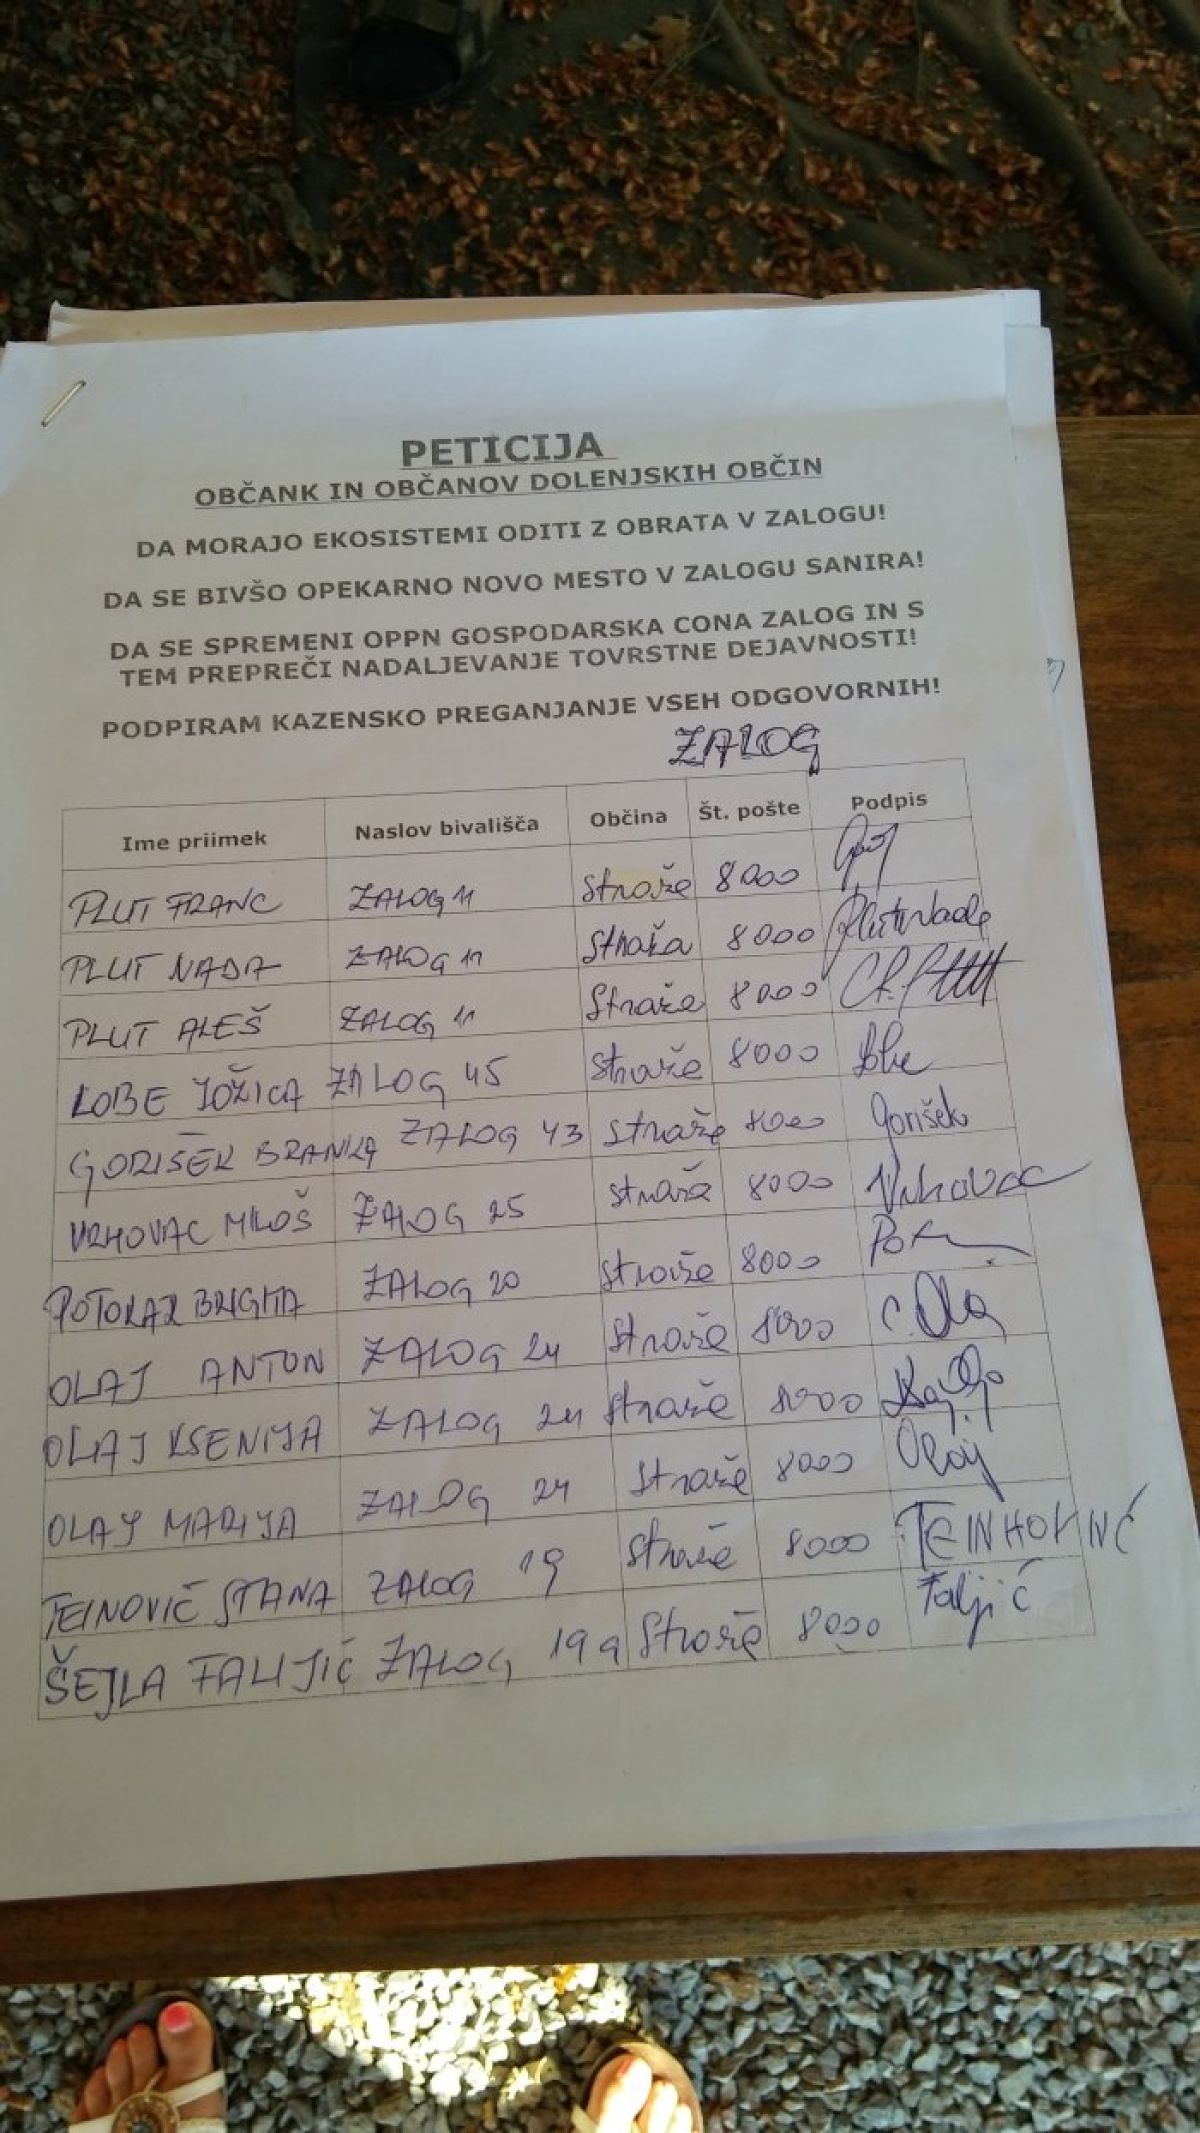 PETICIJA
OBČANK IN OBČANOV DOLENJSKIH OBČIN
DA MORAJO EKOSISTEMI ODITI Z OBRATA V ZALOGU!
DA SE BIVŠO OPEKARNO NOVO MESTO V ZALOGU SANIRA!
DA SE SPREMENI OPPN GOSPODARSKA CONA ZALOG IN S
TEM PREPREČI NADALJEVANJE TOVRSTNE DEJAVNOSTI!
PODPIRAM KAZENSKO PREGANJANJE VSEH ODGOVORNIH!
ZALOG
Ime priimek Naslov bivališča Občina Št. pošte Podpis
PLUT FRANC ZALOG 11 Straže 8000
PLUT NADA ZALOG 11 Straža 8000 Plut Nada
PLUT ALEŠ ZALOG 11 Straže 8000
KOBE JOŽICA ZALOG 45 Straže 8000 Kobe
GORIŠEK BRANKA ZALOG 43 Straže 8000 Gorišek
VRHOVAC MILOŠ ZALOG 25 Straža 8000 Vrhovac
POTOKAR BRIGITA ZALOG 20 Straže 8000
OLAJ ANTON ZALOG 24 Straže 8000
OLAJ KSENIJA ZALOG 24 Straže 8000
OLAJ MARIJA ZALOG 24 Straže 8000 Olaj
TEINOVIČ STANA ZALOG 19 Straže 8000
ŠEJLA FALJIĆ ZALOG 19a Straže 8000 Faljić